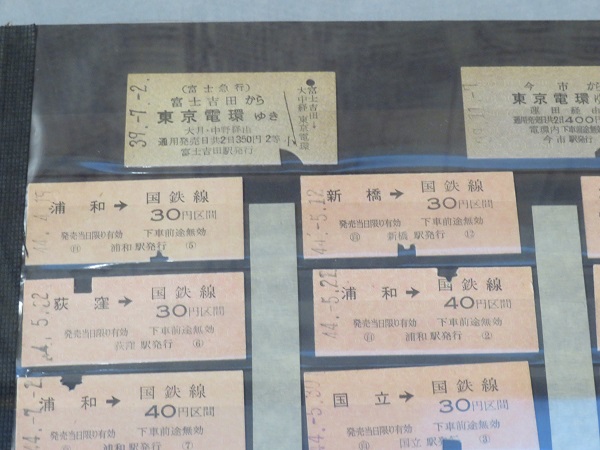 39.-7.-2.
(富士急行)
富士吉田から
東京電環 ゆき
大月・中野経由
通用発売日共2日350円2等
富士吉田駅発行
富士吉田
大中経 東京電環
今市から
東京電環
通用発売日共2日400円
電環内下車前途無効
今市駅発行
浦和→国鉄線
30円区間
発売当日限り有効 下車前途無効
浦和駅発行 ⑤
44.-5.12
新橋→国鉄線
30円区間
発売当日限り有効 下車前途無効
新橋駅発行
荻窪→国鉄線
30円区間
発売当日限り有効 下車前途無効
荻窪駅発行 ⑥
44.-5.22
浦和→国鉄線
40円区間
発売当日限り有効 下車前途無効
浦和駅発行 ②
浦和→国鉄線
40円区間
発売当日限り有効 下車前途無効
浦和駅発行 ⑦
国立→国鉄線
30円区間
発売当日限り有効 下車前途無効
国立駅発行 ③